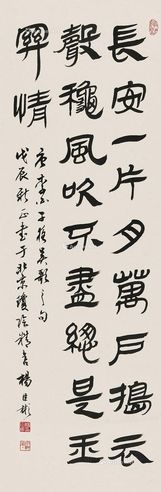 長安一片月萬戶擣衣
聲龝風吹不盡總是玉
關情
唐李白子夜吳歌之句
戊辰新正書于北京瓊瑤精舍楊